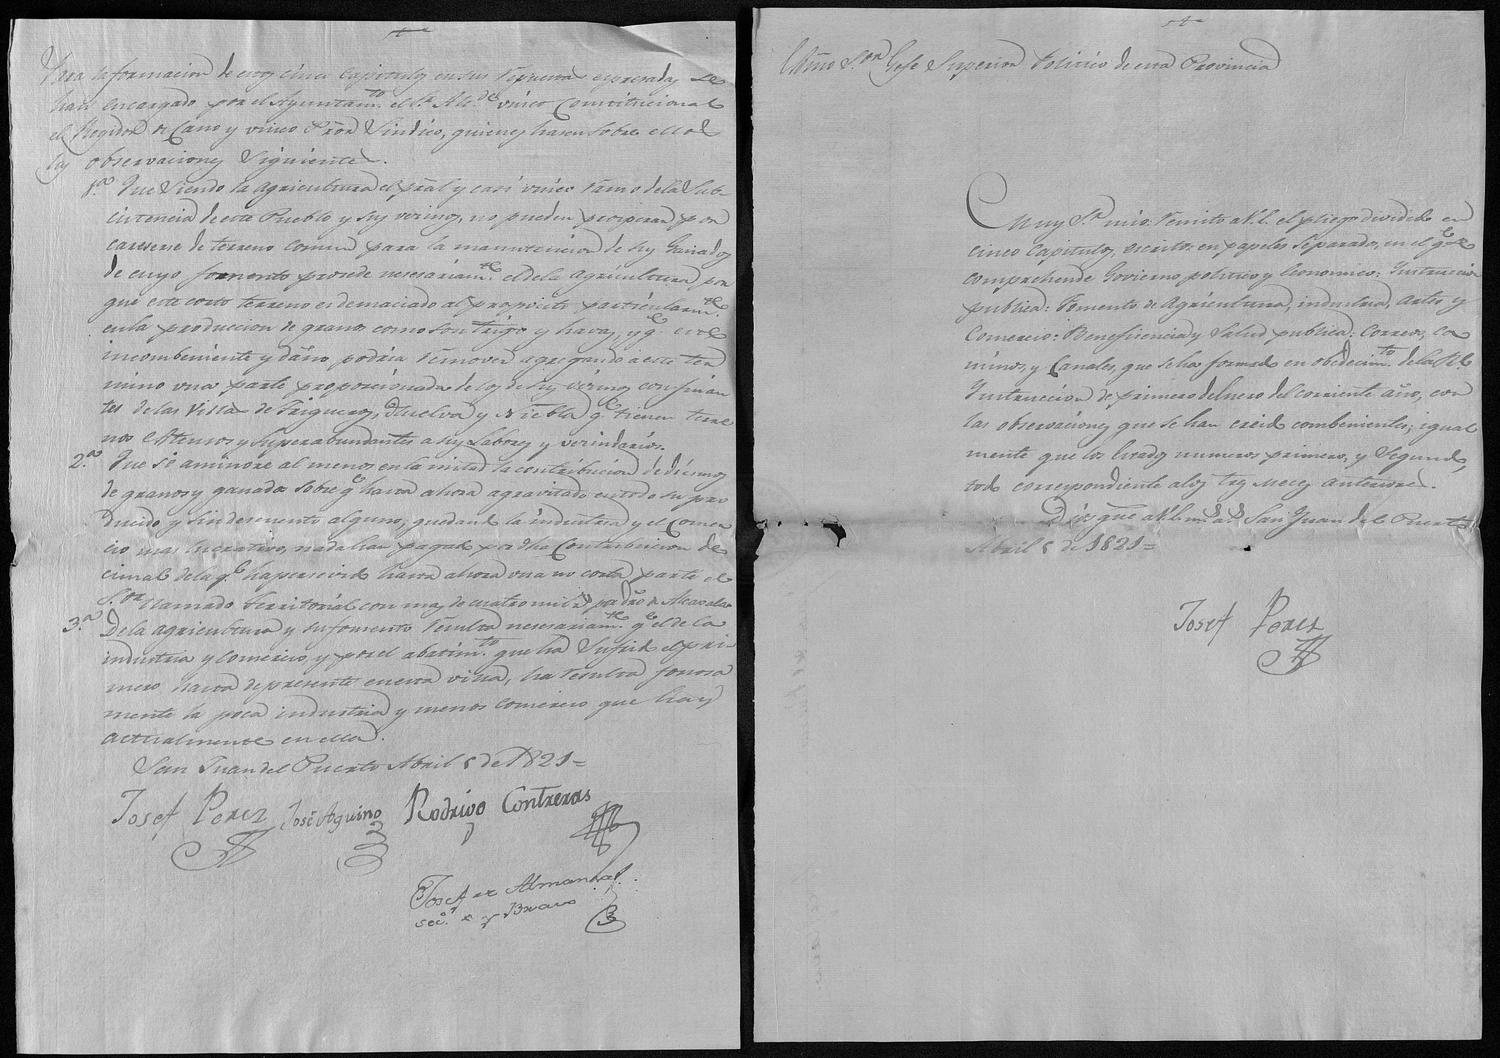 Para la formacion de estos cinco Capitulos en sus terminos expresados se
han encargado por el Ayuntam.to el S.r Alc.de unico Constitucional
el Regidor Decano y unico Pror Sindico, quienes hacen sobre ellos
las observaciones siguientes.
1.a Que siendo la agricultura el pral y casi unico ramo de la Sub-
cistencia de este Pueblo y sus vecinos, no pueden prosperar por
careserse de terreno comun para la manutencion de sus Ganados
de cuyo fomento prosede nesesariam.te el de la agricultura, por
que este corto terreno es demaciado al proposito particularm.te
en la produccion de granos como son trigo y havas, y q.e este
incombeniente y daño, podria remover agregando a este ter
mino una parte proporcionada de los de sus vecinos confinan
tes de las Villas de Trigueros, Huelva y Niebla q.e tienen terre
nos estensos y superabundantes a sus labores y vecindarios.
2.a Que se aminore al menos en la mitad la contribucion de diesmos
de granos y ganados sobre q.e hasta ahora agravitado en todo su pro
ducido y sin desmento alguno, quedando la industria y el Comer
cio mas lucrativo, nada han pagado por dha Contribucion de
cimal de la q.e ha persevido hasta ahora una no corta parte el
S.or llamado territorial con mas de cuatro mil r.s por dro de Alcavala
3.a De la agricultura y su fomento resulta nesesariam.te q.e el de la
industria y Comercio, y por el abatim.to que ha sufrido el pri-
mero hasta de presente en esta villa, ha resultado forzosa
mente la poca industria y menos comercio que hay
actualmente en ella.
San Juan del Puerto Abril 5 de 1821=
Josef Perez José Aquino Rodrigo Contreras
Josef de Almansa
sec.o y Bravo
Ylmo S.or Gefe Superior Politico de esta Provincia
Muy S.r mio: remito a V.S. el pliego dividido en
cinco Capitulos, escritos en papeles separados, en el q.e se
comprehende Govierno politico y Economico: Instruccion
publica: Fomento de Agricultura, industria, artes y
Comercio: Beneficencia y Salud publica: Correos, ca
minos, y Canales, que se ha formado en obedecim.to de la R.l
Instruccion de primero de Enero del corriente año, con
las observaciones que se han creido combenientes; igual
mente que los Estados numeros primero, y Segundo,
todo correspondiente a los tres meses anteriores.
Dios gue a V.S. m.s a.s San Juan del Puerto
Abril 5 de 1821=
Josef Perez